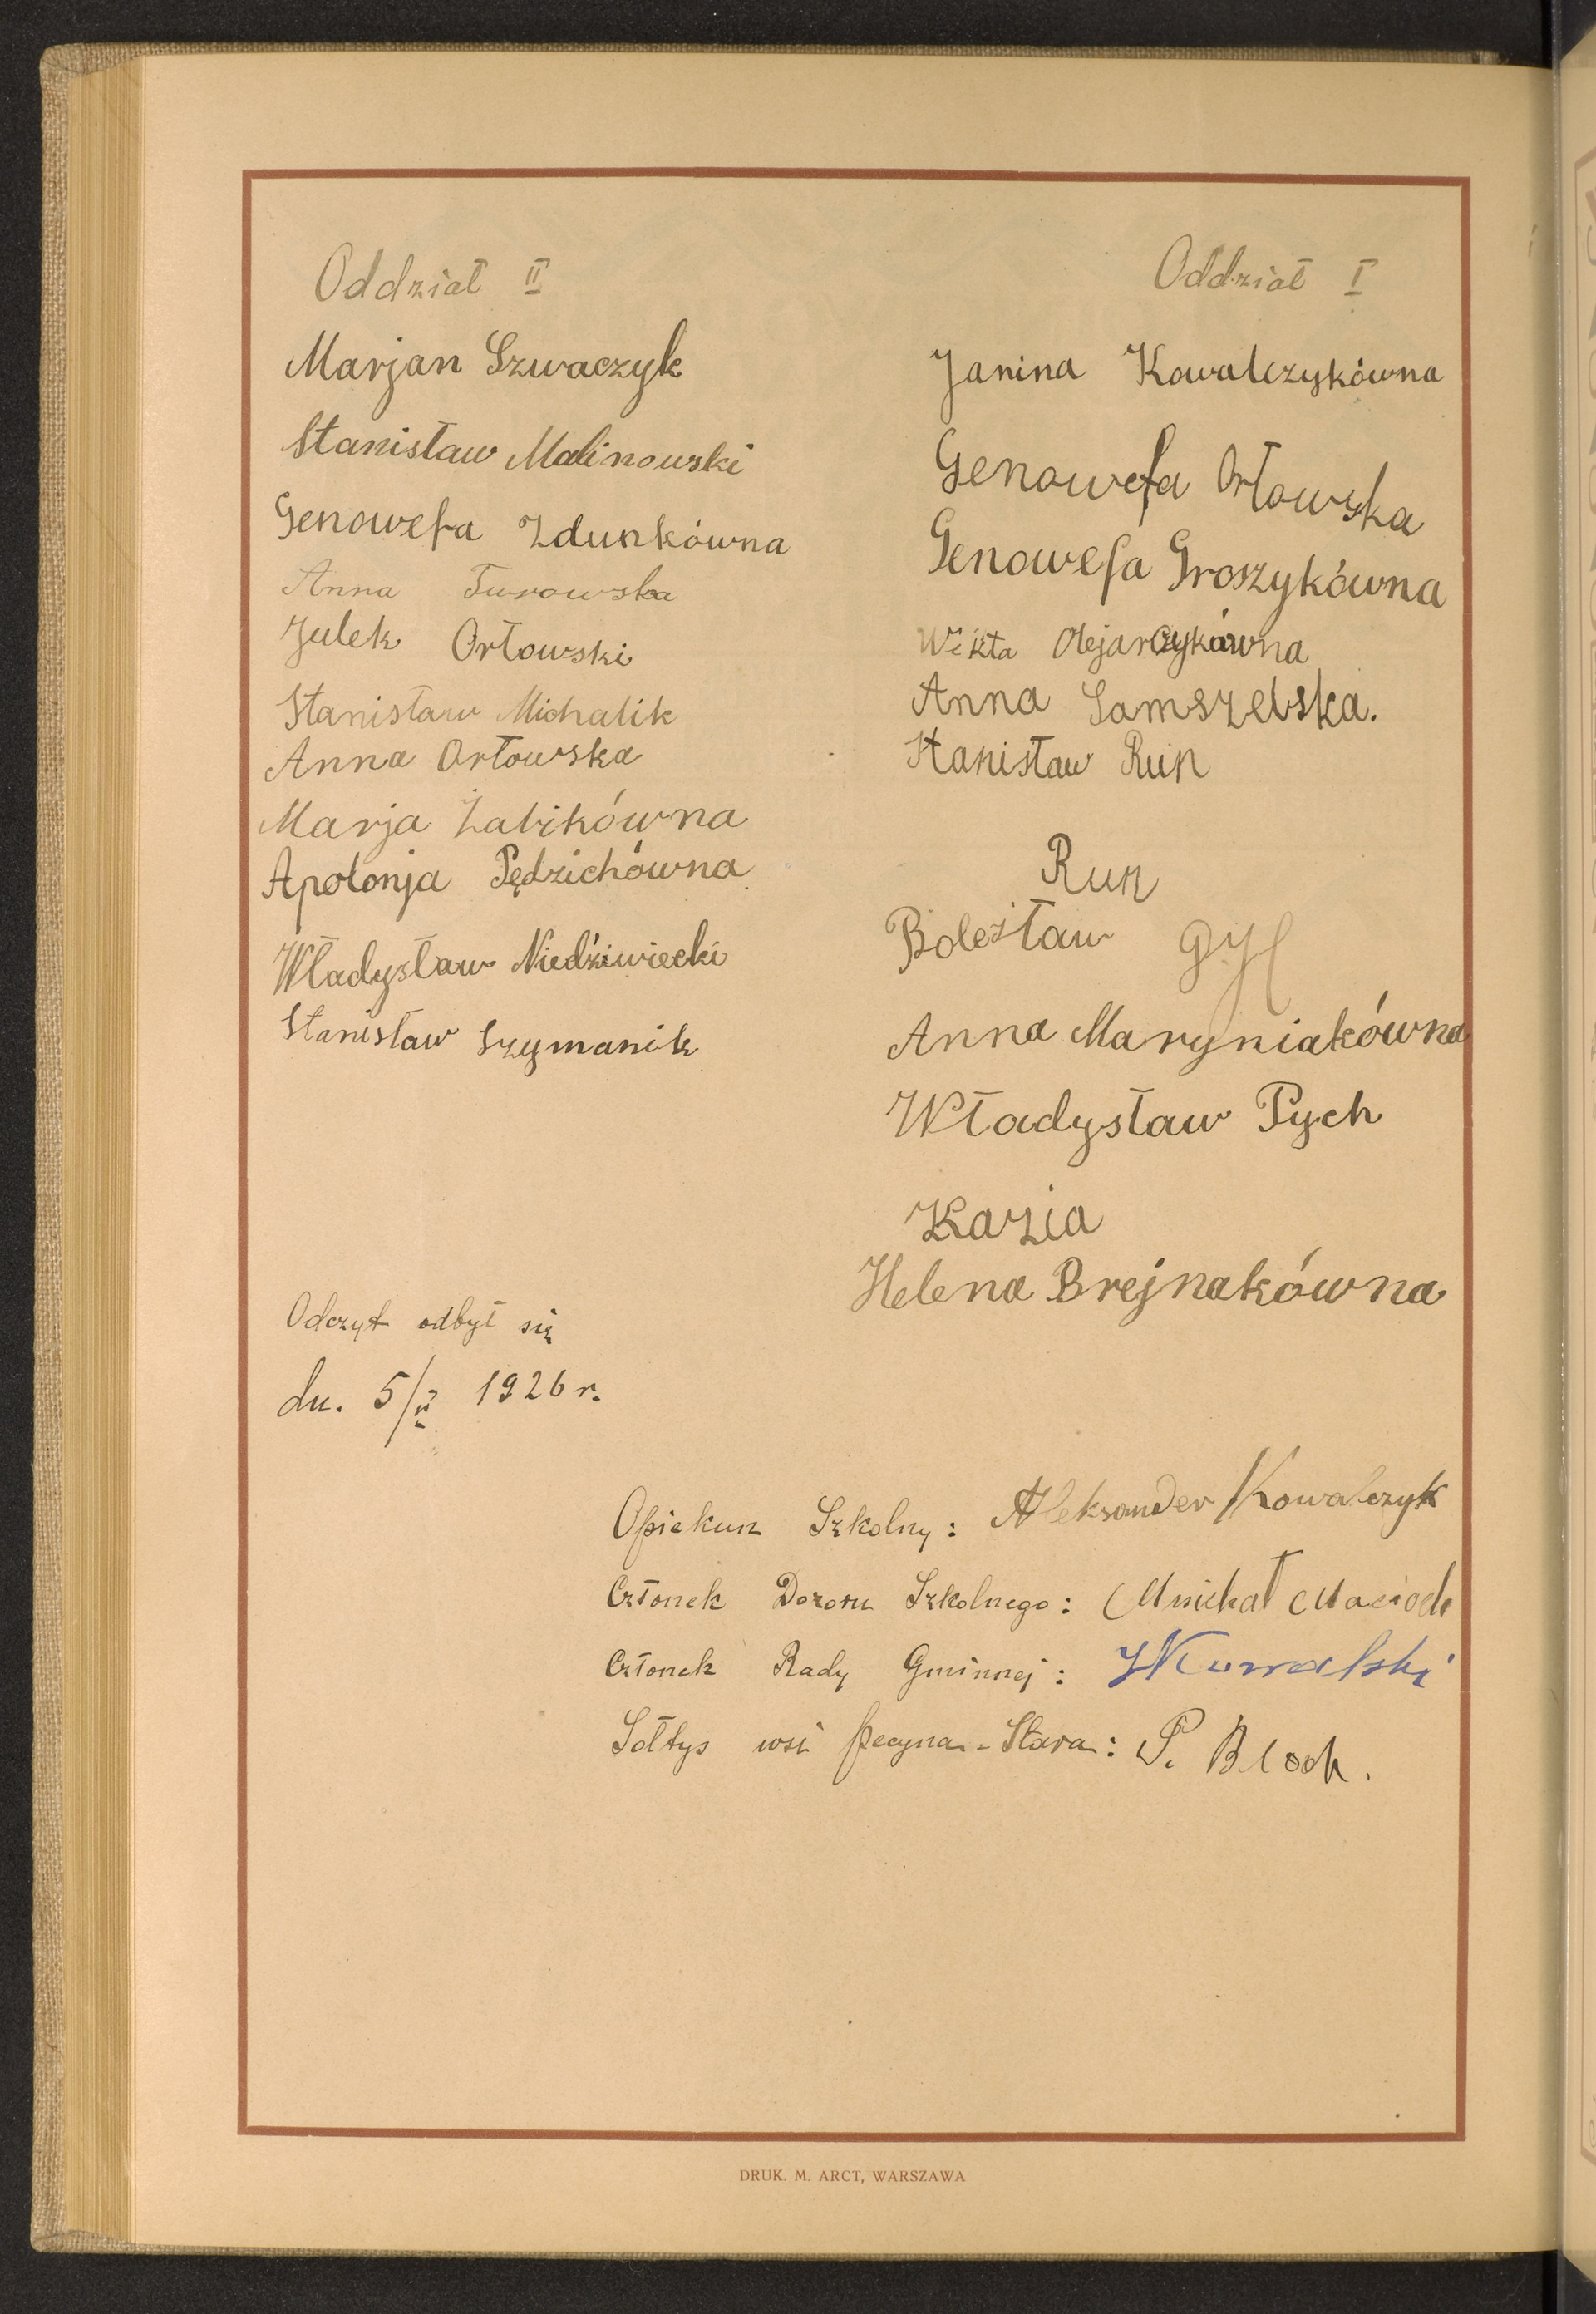 Oddział II
Marjan Szwaczyk
Stanisław Malinowski
Genowefa Zdunkówna
Anna Turowska
Julek Orłowski
Stanisław Michalik
Anna Orłowska
Marja Żabikówna
Apolonja Pędzichówna
Władysław Niedźiwiecki
Stanisław Szymanik
Oddział I
Janina Kowalczykówna
Genowefa Orłowska
Genowefa Groszykówna
Wikta Olejarczykówna
Anna Samszelska.
Stanisław Run
Run
Bolesław Gyl
Anna Maryniakówna
Władysław Pych
Kazia
Helena Brejnakówna
Odczyt odbył się
dn. 5/V 1926 r.
Opiekun Szkolny: Aleksander Kowalczyk
Członek Dozoru Szkolnego: Michał Macioch
Członek Rady Gminnej: J Kowalski
Sołtys wsi Pecyna-Stara: P. Bloch.
DRUK. M. ARCT, WARSZAWA